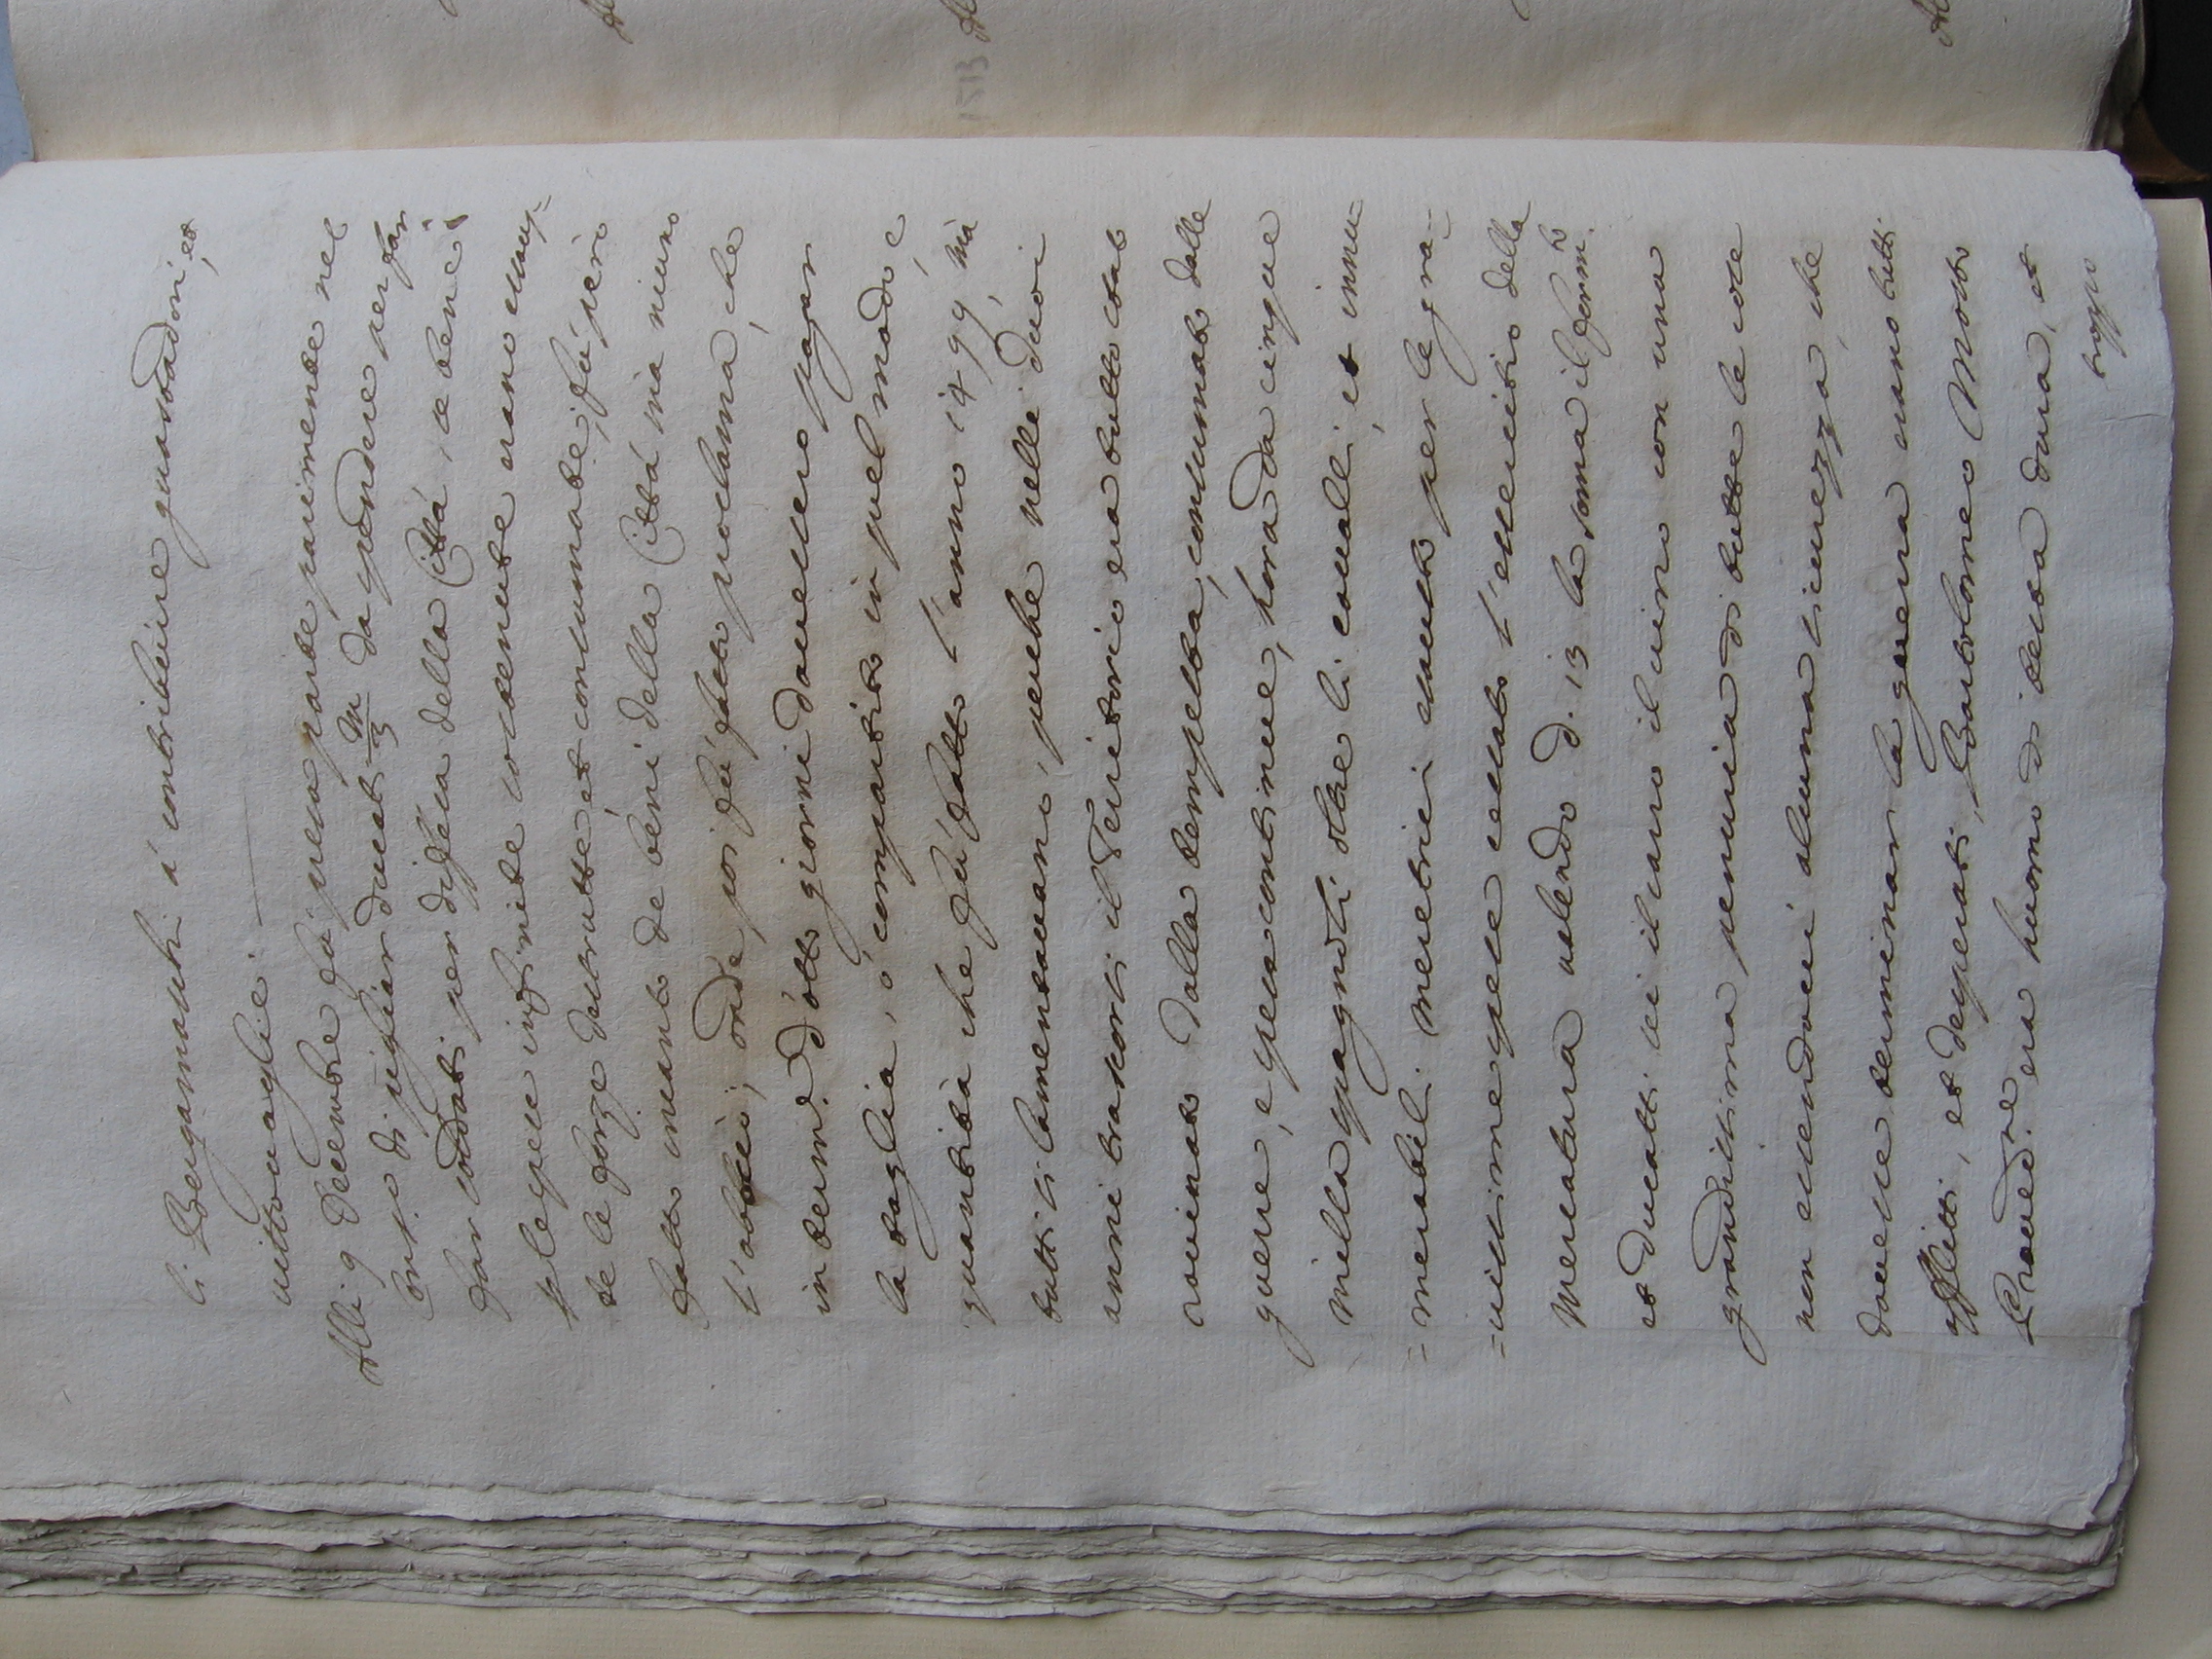 li Bergamaschi à contribuire guastadori, et
vittovaglie.
Alli 9 Decembre fù presa parte parimente nel
Cons.o di pigliar ducati 3/m da spendere per far
far soldati per diffesa della Città, se bene i
p le spese infinite sostenute erano esaus=
te le forze destrutte, et consummate, fù però
fatto incanto de beni della Città mà niuno
l'   ; onde poi fù fatto proclama, che
in term.e d'otto giorni dovessero pagar
la taglia, ò compartito in quel modo, e
quantità che fù fatto l'anno 1499, mà
tutti si lamentavano, perche nelli dieci
anni trascorsi il Territorio era tutto stato
rovinato dalla tempesta, consumato dalle
guerre, e spesa continue, hora da cinque
milla spagnoli oltre li cavalli, et innu=
=merabili meretrici esausto per le gra=
=vissime spese cessato l'essercitio della
Mercatura valendo d. 13 la soma il form.to
et ducatti sei il carro il vino con una
grandissima penuria di tutte le cose
non essendovi alcuna sicurezza, che
dovesse terminar la guerra erano tutti
afflitti, et desperati, Bartolomeo Mosto
Proved.re era huomo di testa dura, et
troppo
1513